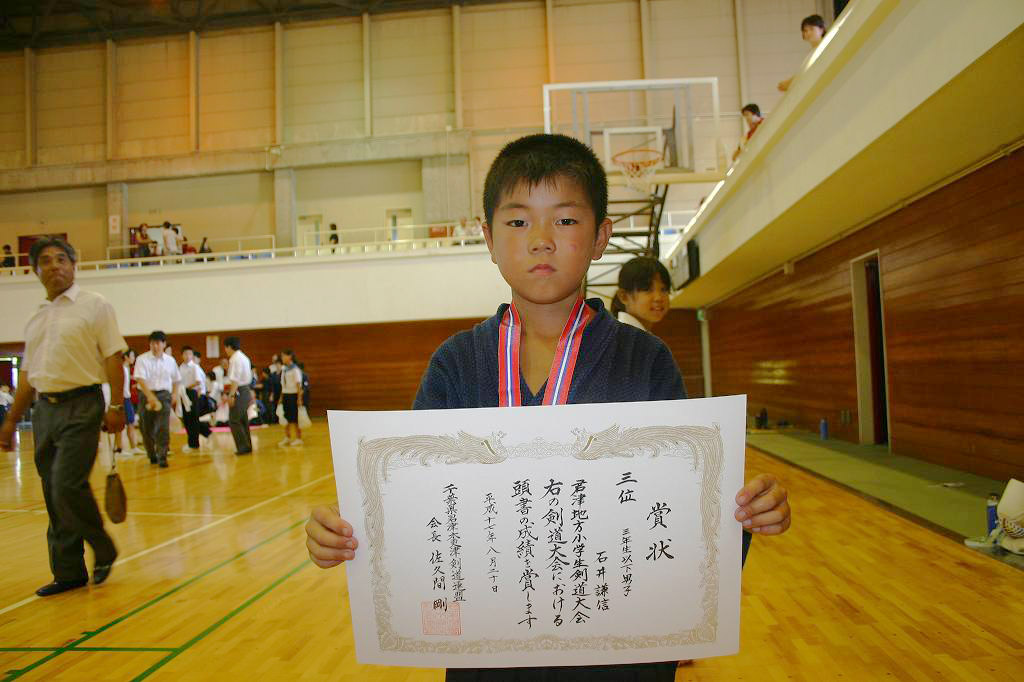 賞状
三位
三年生以下男子
石井謙信
君津地方小学生剣道大会
右の剣道大会における
頭書の成績を賞します
平成十七年八月二十日
千葉県君津木更津剣道連盟
会長 佐久間 剛